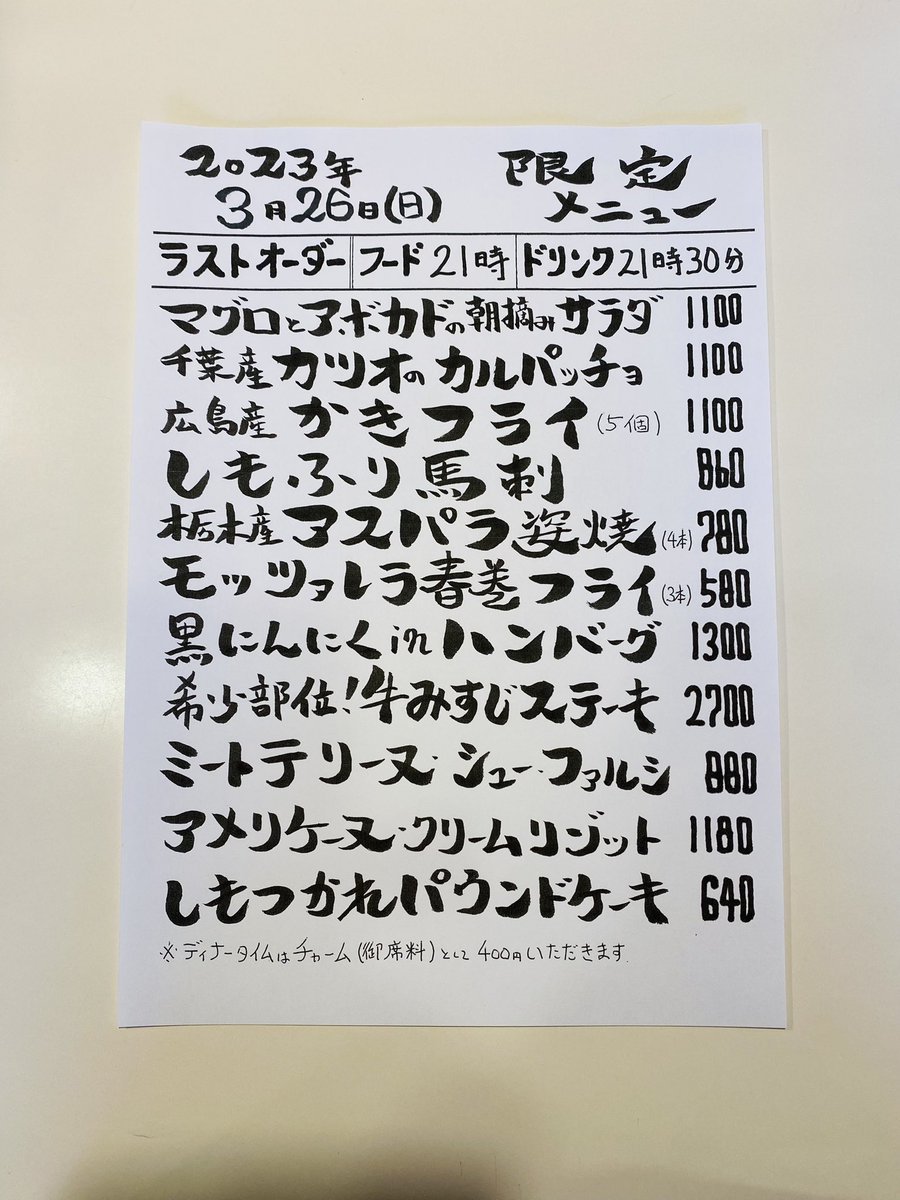 2023年 限定
3月26日(日) メニュー
ラストオーダー フード21時 ドリンク21時30分
マグロとアボカドの朝摘みサラダ 1100
千葉産カツオのカルパッチョ 1100
広島産かきフライ(5個) 1100
しもふり馬刺 860
栃木産アスパラ姿焼(4本) 780
モッツァレラ春巻フライ(3本) 580
黒にんにくinハンバーグ 1300
希少部位!牛みすじステーキ 2700
ミートテリーヌ・シュー・ファルシ 880
アメリケーヌ・クリームリゾット 1180
しもつかれパウンドケーキ 640
※ディナータイムはチャーム(御席料)として400円いただきます.